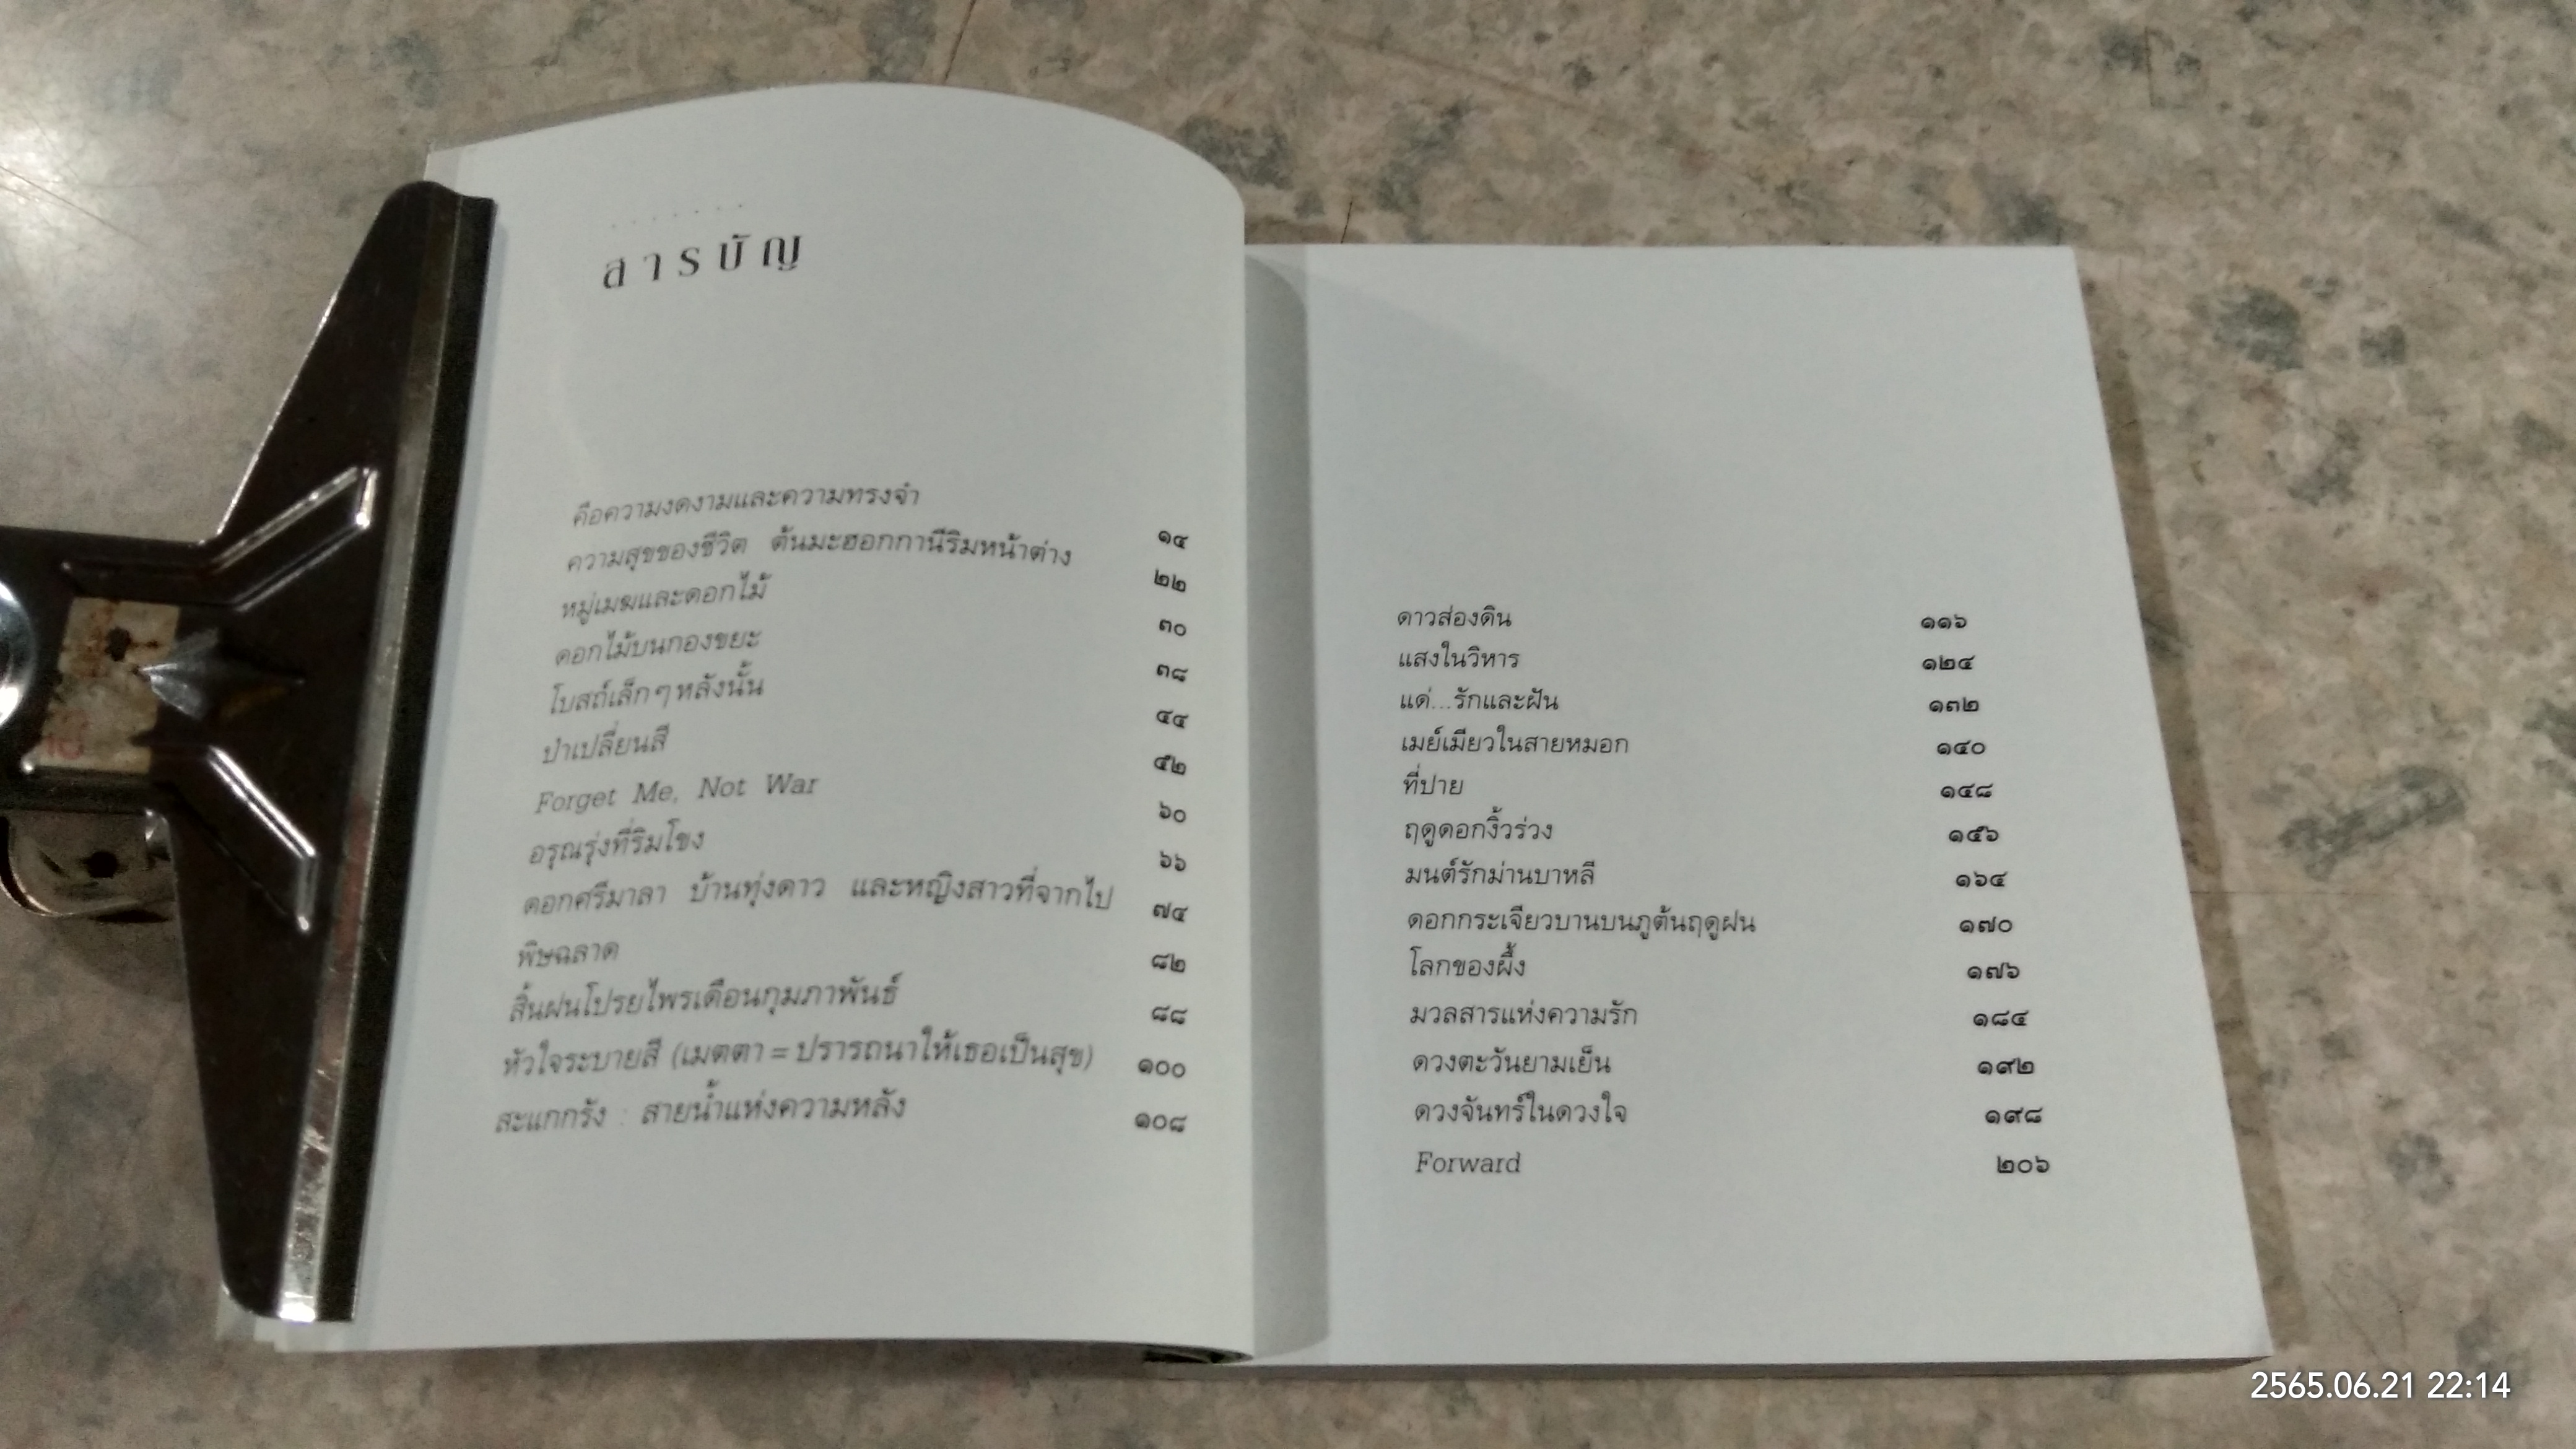 สารบัญ
คือความงดงามและความทรงจำ ๑๔
ความสุขของชีวิต ต้นมะฮอกกานีริมหน้าต่าง ๒๒
หมู่เมฆและดอกไม้ ๓๐
ดอกไม้บนกองขยะ ๓๘
โบสถ์เล็กๆ หลังนั้น ๔๔
ป่าเปลี่ยนสี ๕๒
Forget Me, Not War ๖๐
อรุณรุ่งที่ริมโขง ๖๖
ดอกศรีมาลา บ้านทุ่งดาว และหญิงสาวที่จากไป ๗๔
พิษฉลาด ๘๒
สิ้นฝนโปรยไพรเดือนกุมภาพันธ์ ๘๘
หัวใจระบายสี (เมตตา = ปรารถนาให้เธอเป็นสุข) ๑๐๐
สะแกกรัง : สายน้ำแห่งความหลัง ๑๐๘
ดาวส่องดิน ๑๑๖
แสงในวิหาร ๑๒๔
แด่...รักและฝัน ๑๓๒
เมย์เมียวในสายหมอก ๑๔๐
ที่ปาย ๑๔๘
ฤดูดอกงิ้วร่วง ๑๕๖
มนต์รักม่านบาหลี ๑๖๔
ดอกกระเจียวบานบนภูต้นฤดูฝน ๑๗๐
โลกของผึ้ง ๑๗๖
มวลสารแห่งความรัก ๑๘๔
ดวงตะวันยามเย็น ๑๙๒
ดวงจันทร์ในดวงใจ ๑๙๘
Forward ๒๐๖
2565.06.21 22:14